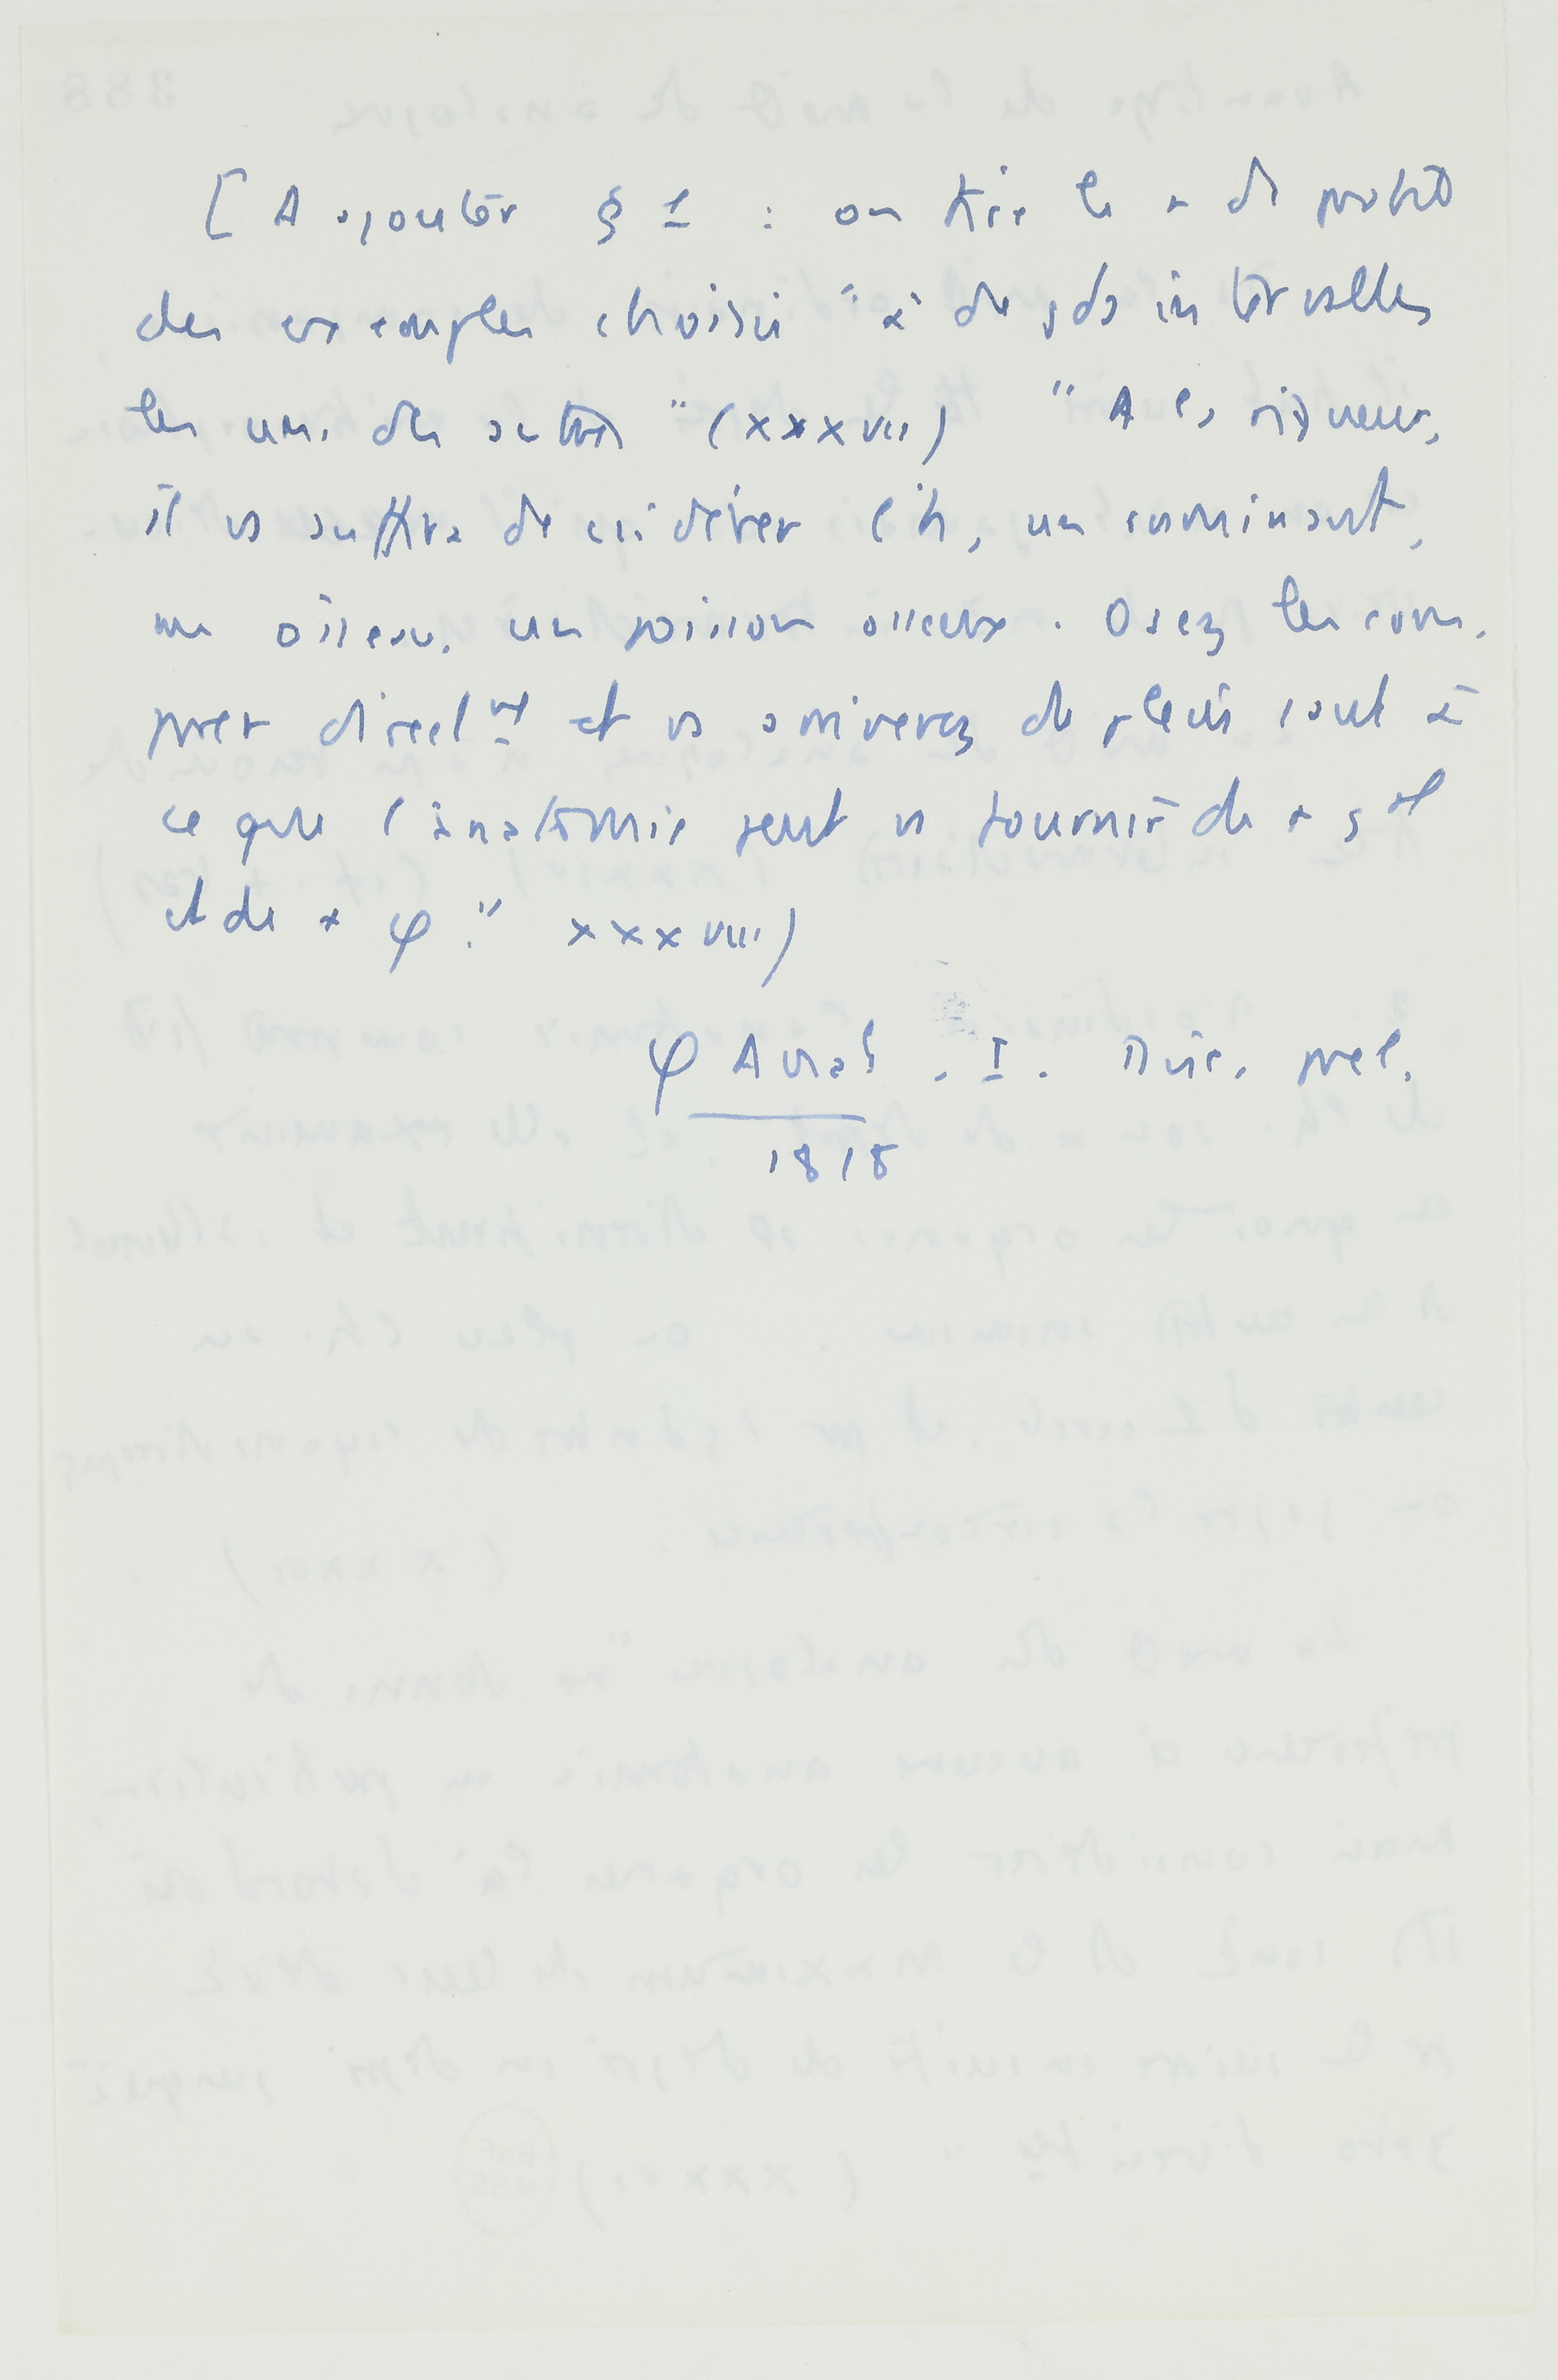 [A ajouter § 1 : on tire le + de profit
des exemples choisis "à de gds intervalles
les uns des autres" (XXXVII) "A la rigueur,
il vs suffira de csidérer l'h, un ruminant,
un oiseau, un poisson osseux. Osez les com-
parer direct^mt et vs arriverez de plein saut à
ce que l'anatomie peut vs fournir de + g^al
et de + φ." XXXVIII)
φ Anat. I. Disc. prel.
1818